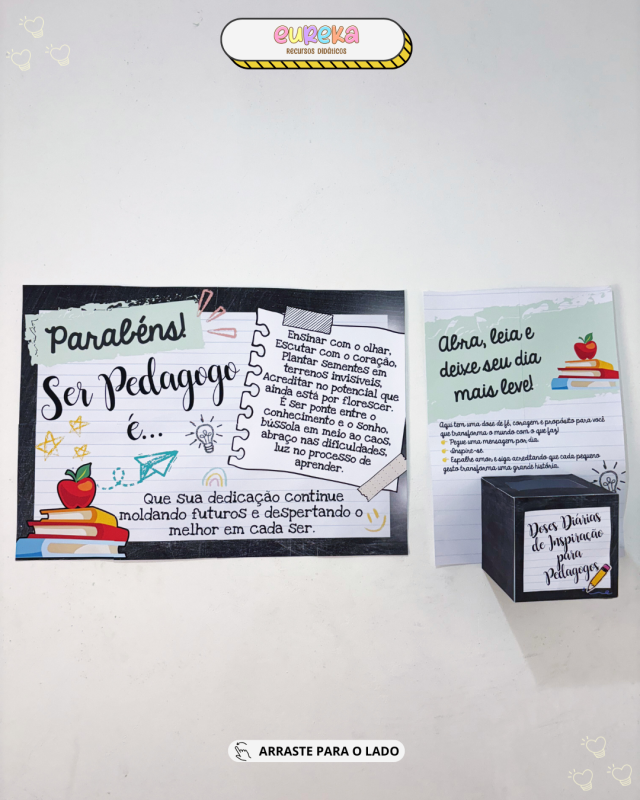 eureka
RECURSOS DIDÁTICOS
Parabéns!
Ser Pedagogo
é...
Ensinar com o olhar,
Escutar com o coração,
Plantar sementes em
terrenos invisíveis,
Acreditar no potencial que
ainda está por florescer.
É ser ponte entre o
conhecimento e o sonho,
bússola em meio ao caos,
abraço nas dificuldades,
luz no processo de
aprender.
Que sua dedicação continue
moldando futuros e despertando o
melhor em cada ser.
Abra, leia e
deixe seu dia
mais leve!
Aqui tem uma dose de fé, coragem e propósito para você
que transforma o mundo com o que faz!
Pegue uma mensagem por dia.
Inspire-se.
Espalhe amor, e siga acreditando que cada pequeno
gesto transforma uma grande história.
Doses Diárias
de Inspiração
para
Pedagogos
ARRASTE PARA O LADO